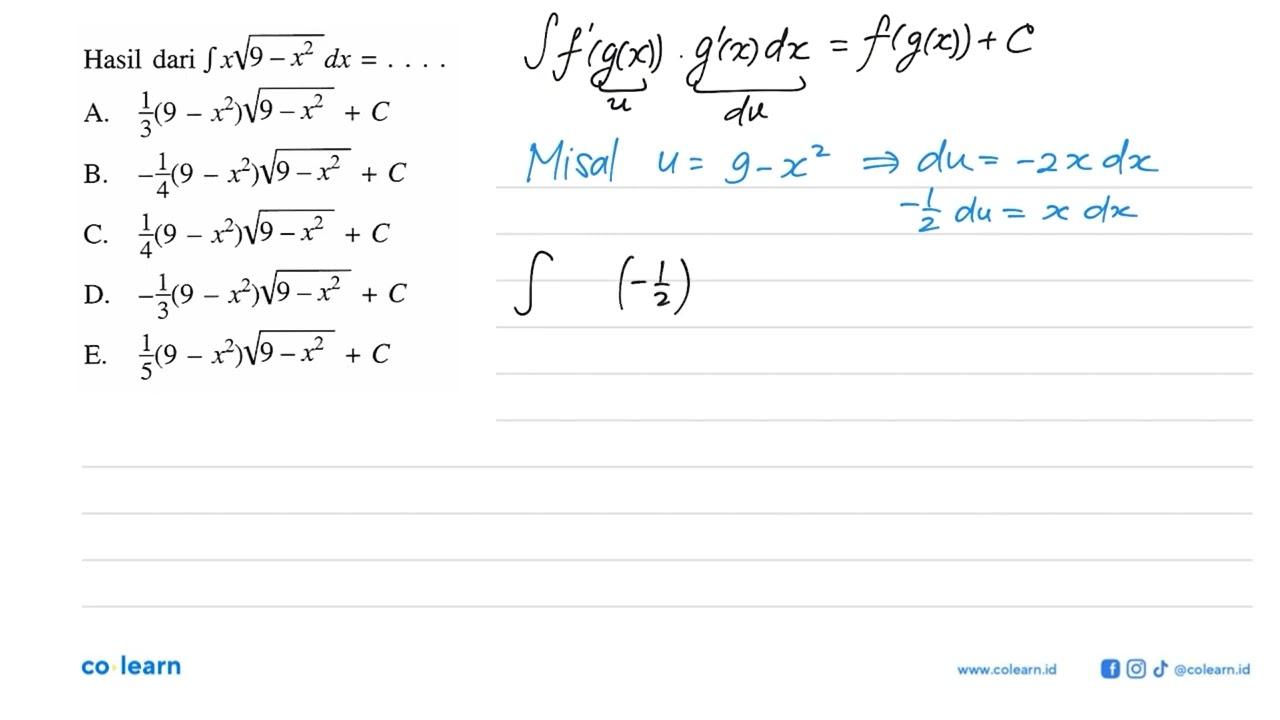 Hasil dari ∫ x√(9 – x²) dx = . . . .
A. 1/3(9 – x²)√(9 – x²) + C
B. –1/4(9 – x²)√(9 – x²) + C
C. 1/4(9 – x²)√(9 – x²) + C
D. –1/3(9 – x²)√(9 – x²) + C
E. 1/5(9 – x²)√(9 – x²) + C
∫ f'(g(x)) · g'(x) dx = f(g(x)) + C
u du
Misal u = 9 – x² ⇒ du = –2x dx
–1/2 du = x dx
∫ (–1/2)
co learn
www.colearn.id @colearn.id